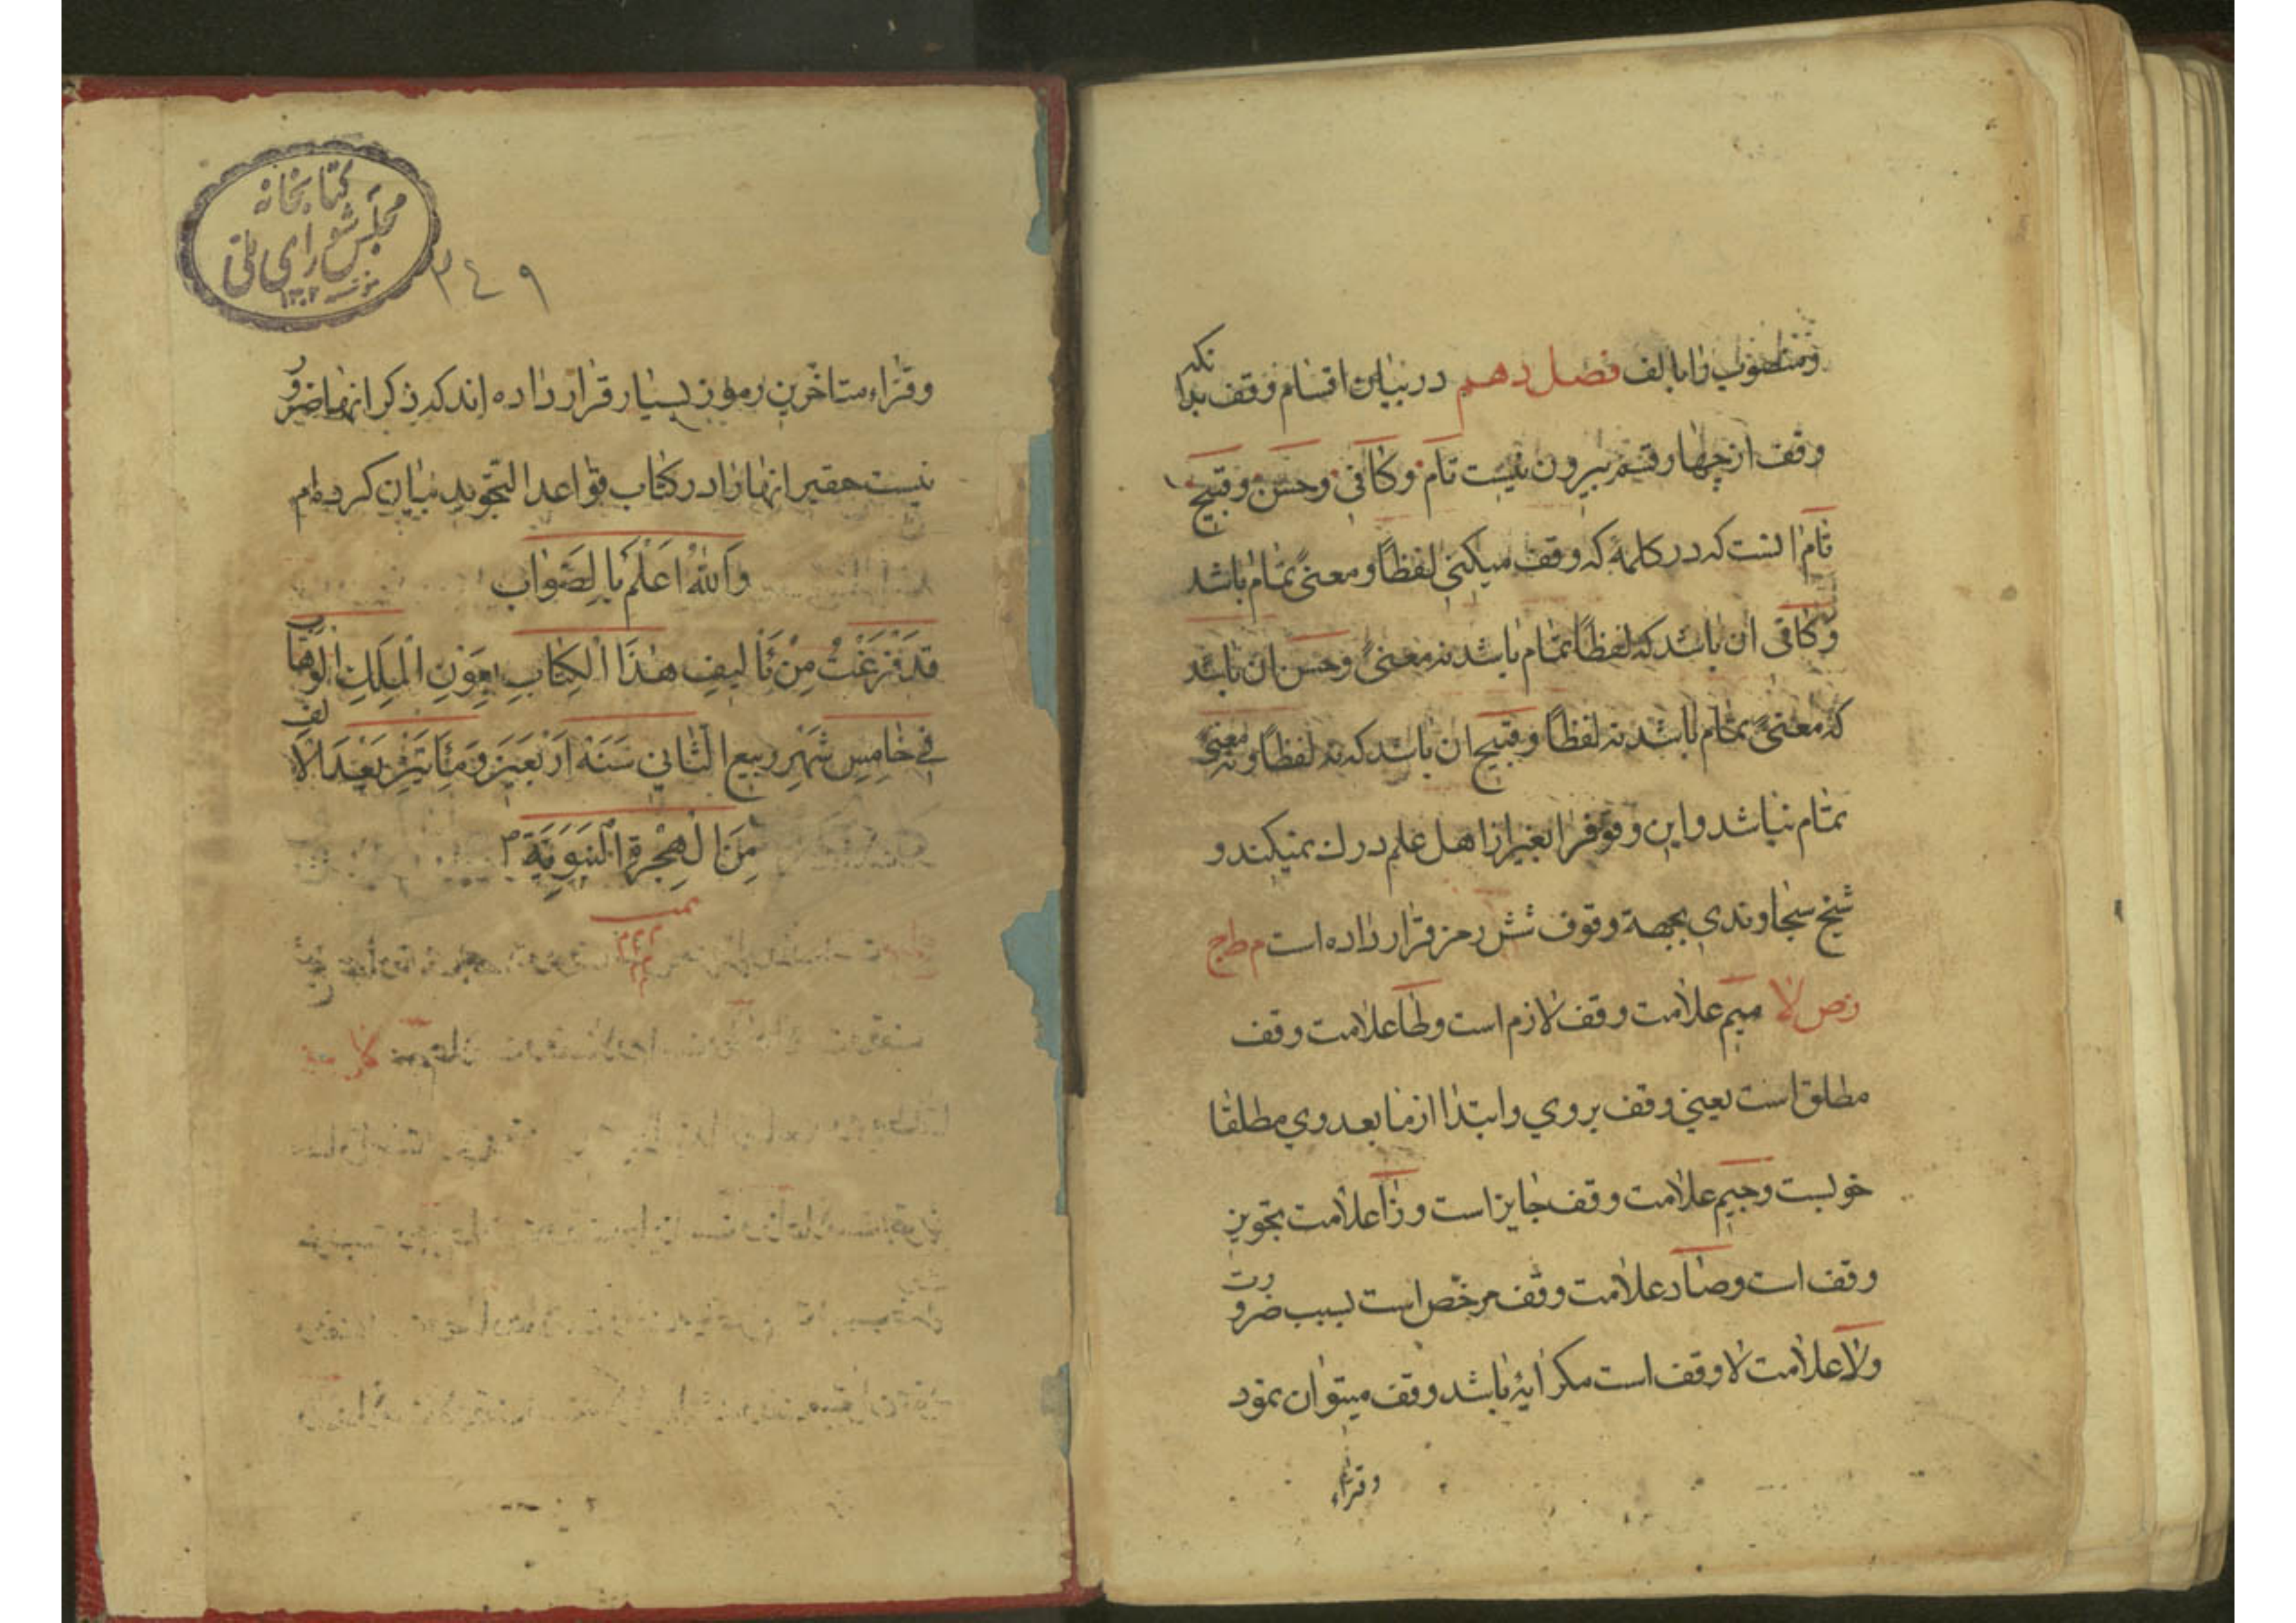 ومنصوب را بالف فصل دهم در بیان اقسام وقف بدانکه
وقف از چهار قسم بیرون نیست تام وکافی وحسن وقبیح
تام انست که در کلمهٔ که وقف میکنی لفظاً ومعنیً تمام باشد
وکافی ان باشد که لفظاً تمام باشد نه معنیً وحسن ان باشد
که معنیً تمام باشد نه لفظاً وقبیح ان باشد که نه لفظاً ونه معنیً
تمام نباشد واین وقوفرا بغیر از اهل علم درک نمیکند و
شیخ سجاوندی بجهة وقوف شش رمز قرار داده است م ط ج
ز ص لا میم علامت وقف لازم است وطا علامت وقف
مطلق است یعنی وقف بروی وابتدا از ما بعد وی مطلقا
خوبست وجیم علامت وقف جایز است وزا علامت تجویز
وقف است وصاد علامت وقف مرخّص است بسبب ضرورت
ولا علامت لا وقف است مکر ایهٔ باشد وقف میتوان نمود
وقرّاء
کتابخانه
مجلس شورای ملی
٣٤٩
وقرّاء متاخرین رموز بسیار قرار داده اند که ذکر انها ضرور
نیست حقیر انها را در کتاب قواعد التجوید بیان کرده‌ام
وَاللهُ اَعْلَمُ بِالصَّوابِ
قَدْ فَرَغْتُ مِنْ تَألیفِ هٰذَا الْکِتابِ بِعَوْنِ الْمَلِکِ الْوَهّاب
فی خامِسِ شَهْرِ ربیع الثّانی سَنَةَ اَرْبَعینَ وَمِأتَیْنِ بَعْدَ الْاَلف
مِنَ الْهِجْرَةِ النَّبَوِیَّةِ